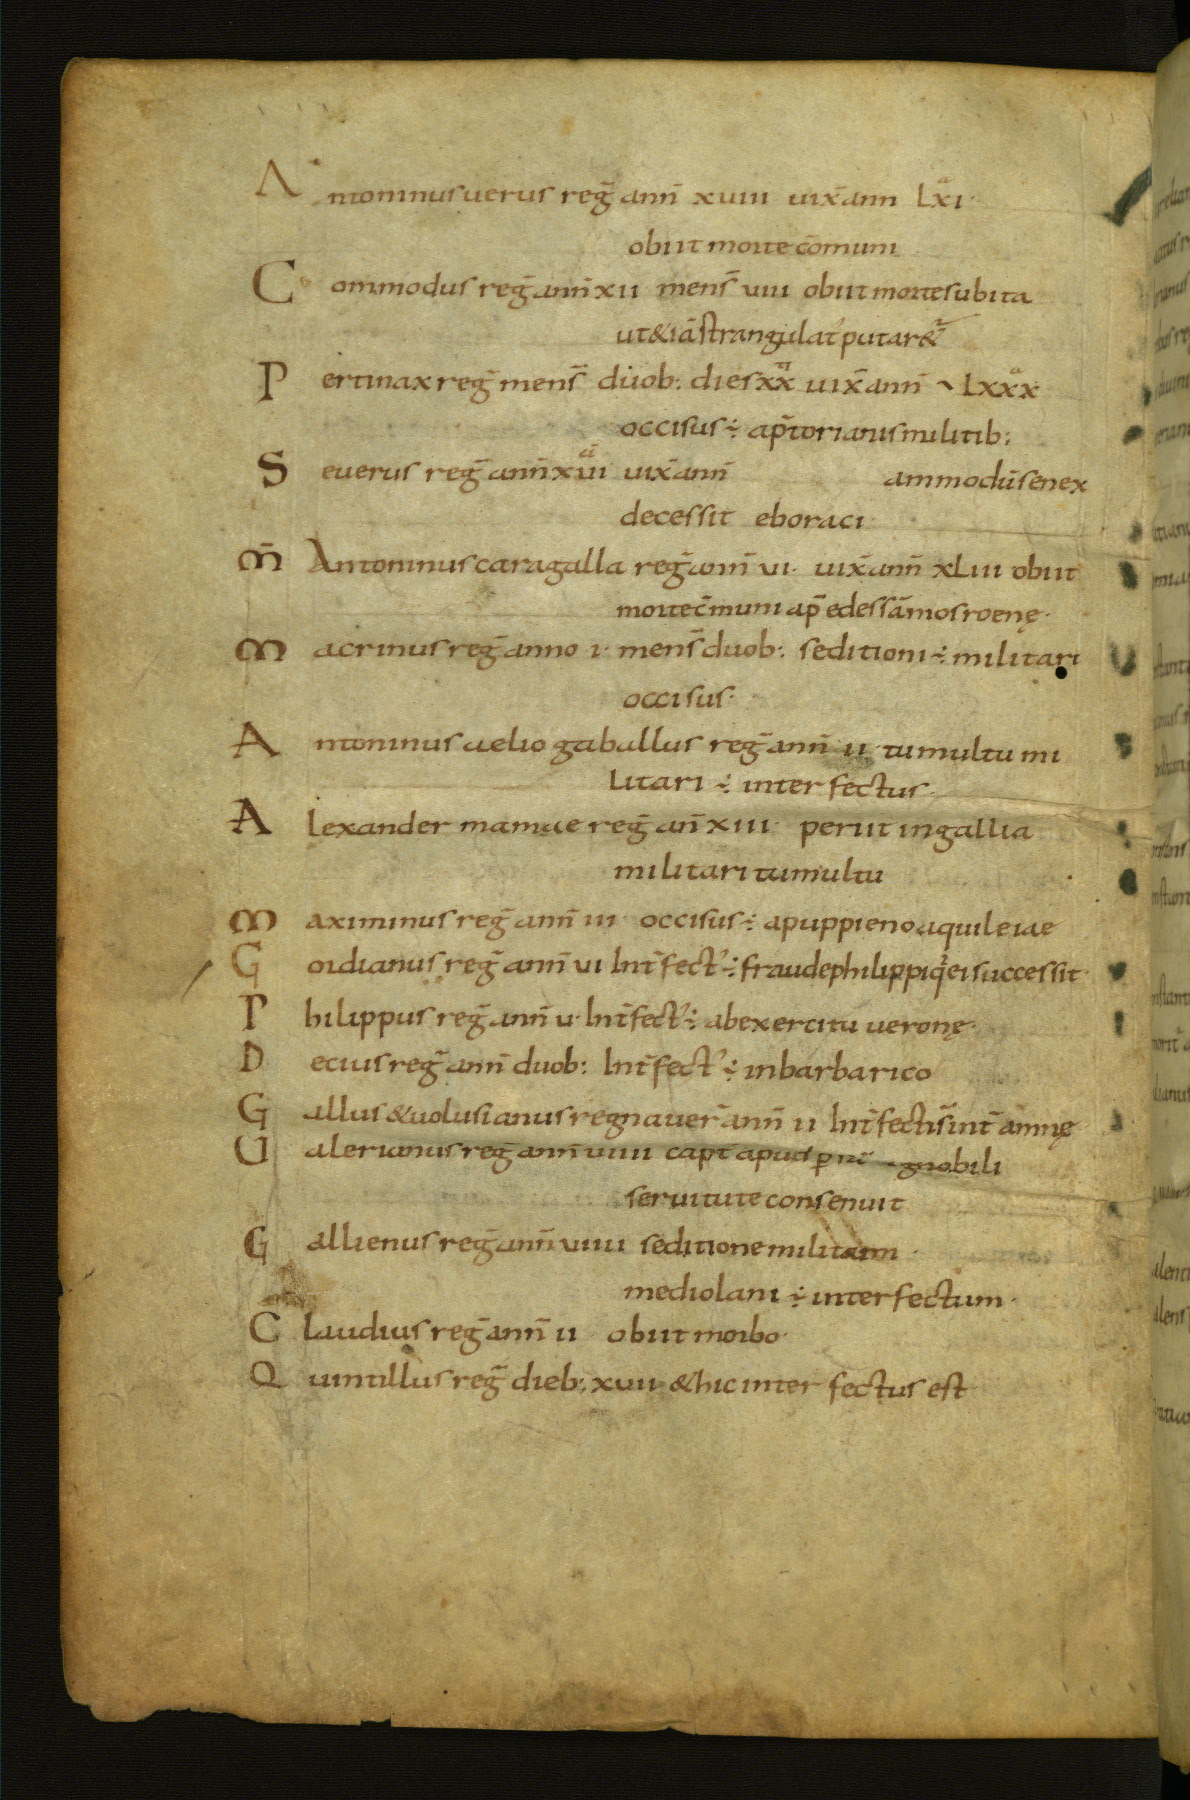 Antoninus uerus reḡ ann̄ xuiii uix̄ ann Lxi·
obiit morte cōmuni
Commodus reḡ ann̄ xii mens̄ uiii obiit morte subita
ut & iā strangulat̄ putar&ᷣ
Pertinax reḡ mens̄ duob: dies xx uix̄ ann̄ Lxxx
occisus ÷ a p̄torianis militib:
Seuerus reḡ ann̄ xuii uix̄ ann̄ ammodū senex
decessit eboraci·
M̄ Antoninus caragalla reḡ ann̄ ui· uix̄ ann̄ xLiii obiit
morte c̄muni ap̄ edessā mosroenę·
Macrinus reḡ anno i· mens̄ duob: seditioni ÷ militari
occisus·
Antoninus aelio gaballus reḡ ann̄ ii tumultu mi
litari ÷ interfectus·
Alexander mamae reḡ an̄ xiii· periit in gallia
militari tumultu
Maximinus reḡ ann̄ iii occisus ÷ a puppieno aquileiae
Gordianus reḡ ann̄ ui Int̄fect' ÷ fraude philippi q̄ ei successit·
Philippus reḡ ann̄ u· Int̄fect' ÷ ab exercitu ueronę·
Decius reḡ ann̄ duob: Int̄fect' ÷ in barbarico
Gallus & uolusianus regnauer̄ ann̄ ii Int̄fecti s̄ int̄amnę
Ualerianus reḡ ann̄ uiiii capt̄ apud gnobili
seruitute consenuit
Gallienus reḡ ann̄ uiiii seditione militum·
mediolani ÷ interfectum·
Claudius reḡ ann̄ ii obiit morbo·
Quintillus reḡ dieb: xuii & hic interfectus est